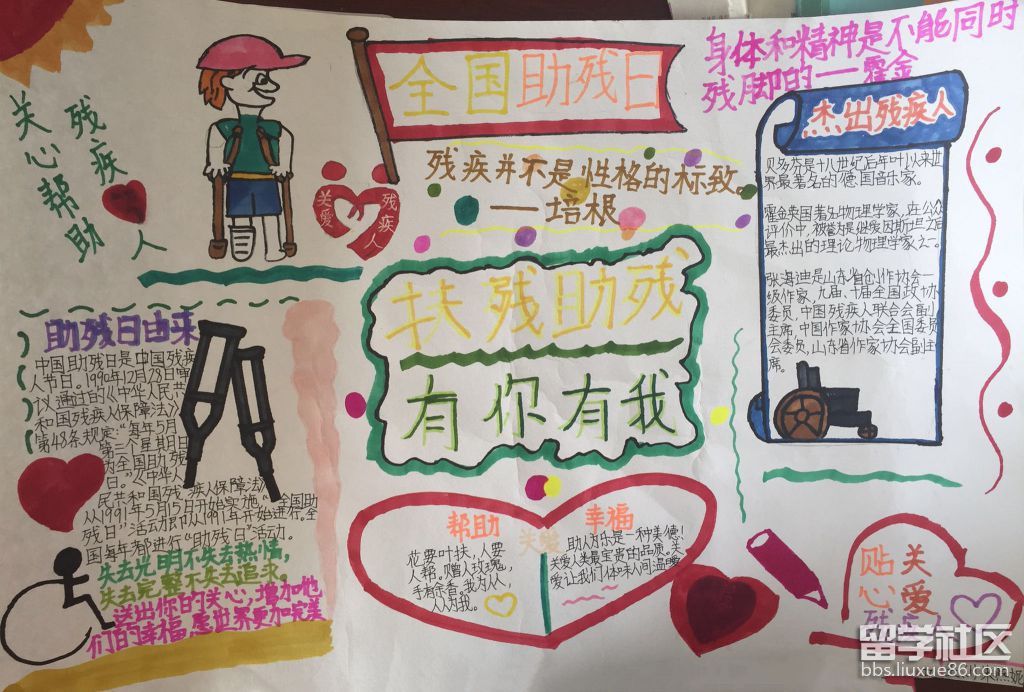 关心帮助
残疾人
全国助残日
身体和精神是不能同时
残脚的——霍金
残疾并不是性格的标致。
——培根
关爱
残疾人
杰出残疾人
贝多芬是十八世纪后年叶以来世
界最著名的德国音乐家。
霍金英国著名物理学家,在公众
评价中,被誉为是继爱因斯坦之后
最杰出的理论物理学家之一。
张海迪是山东省创作协会一
级作家,九届、十届全国政协
委员,中国残疾人联合会副
主席,中国作家协会全国委员
会委员,山东省作家协会副主
席。
扶残助残
有你有我
助残日由来
中国助残日是中国残疾
人节日。1990年12月28日审
议通过的《中华人民共
和国残疾人保障法》
第48条规定:"每年5月
第三个星期日
为全国助残
日。"《中华人
民共和国残疾人保障法》
从1991年5月15日开始实施,"全国助
残日"活动即从1991年开始进行。全
国每年都进行"助残日"活动。
失去光明不失去热情,
失去完整不失去追求。
送出你的关心,增加他
们的幸福,愿世界更加完美
关爱
帮助
花要叶扶,人要
人帮。赠人玫瑰,
手有余香。我为人人,
人人为我。
幸福
助人为乐是一种美德!
关爱人类最宝贵的品质。关
爱让我们体味人间温暖
贴心
关爱
残疾
留学社区
bbs.liuxue86.com